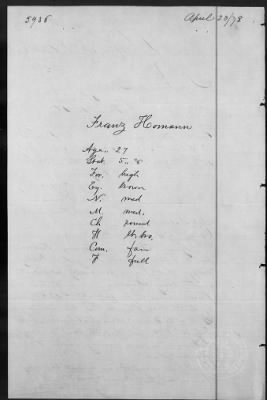 5936 April 23/78
Franz Homann
Age. 27
Stat. 5"
For. high
Ey. brown
N. med
M med.
Ch round
H
Com. fair
F full